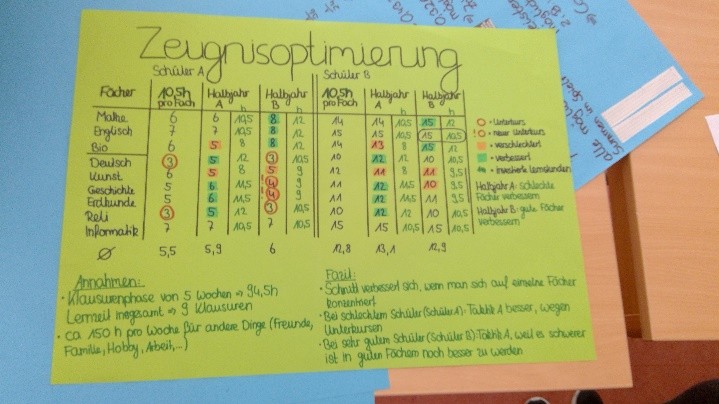 Zeugnisoptimierung
Schüler A Schüler B
Fächer 10,5h pro Fach Halbjahr A h Halbjahr B h 10,5h pro Fach Halbjahr A h Halbjahr B h
Mathe 6 6 10,5 8 12 14 14 10,5 15 12
Englisch 7 7 10,5 8 12 15 15 10,5 15 10,5
Bio 6 5 8 8 12 14 13 8 15 12
Deutsch 3 5 12 3 10,5 10 12 12 10 10,5
Kunst 6 5 8 5 9 12 11 8 11 9,5
Geschichte 5 6 11,5 4 9 11 12 11,5 10 9,5
Erdkunde 5 6 11,5 4 9 11 12 11,5 11 9,5
Reli 3 5 12 3 10,5 10 12 12 10 10,5
Informatik 7 7 10,5 7 10,5 15 15 10,5 15 10,5
Ø 5,5 5,9 6 12,8 13,1 12,9
= Unterkurs
= neuer Unterkurs
= verschlechtert
= verbessert
h = investierte Lernstunden
Halbjahr A: schlechte
Fächer verbessern
Halbjahr B: gute Fächer
verbessern
Annahmen:
• Klausurenphase von 5 Wochen → 94,5h
Lernzeit insgesamt → 9 Klausuren
• ca 150 h pro Woche für andere Dinge (Freunde,
Familie, Hobby, Arbeit,...)
Fazit:
• Schnitt verbessert sich, wenn man sich auf einzelne Fächer
konzentriert
• Bei schlechtem Schüler (Schüler A): Taktik A besser, wegen
Unterkursen
• Bei sehr gutem Schüler (Schüler B): Taktik A, weil es schwerer
ist in guten Fächern noch besser zu werden